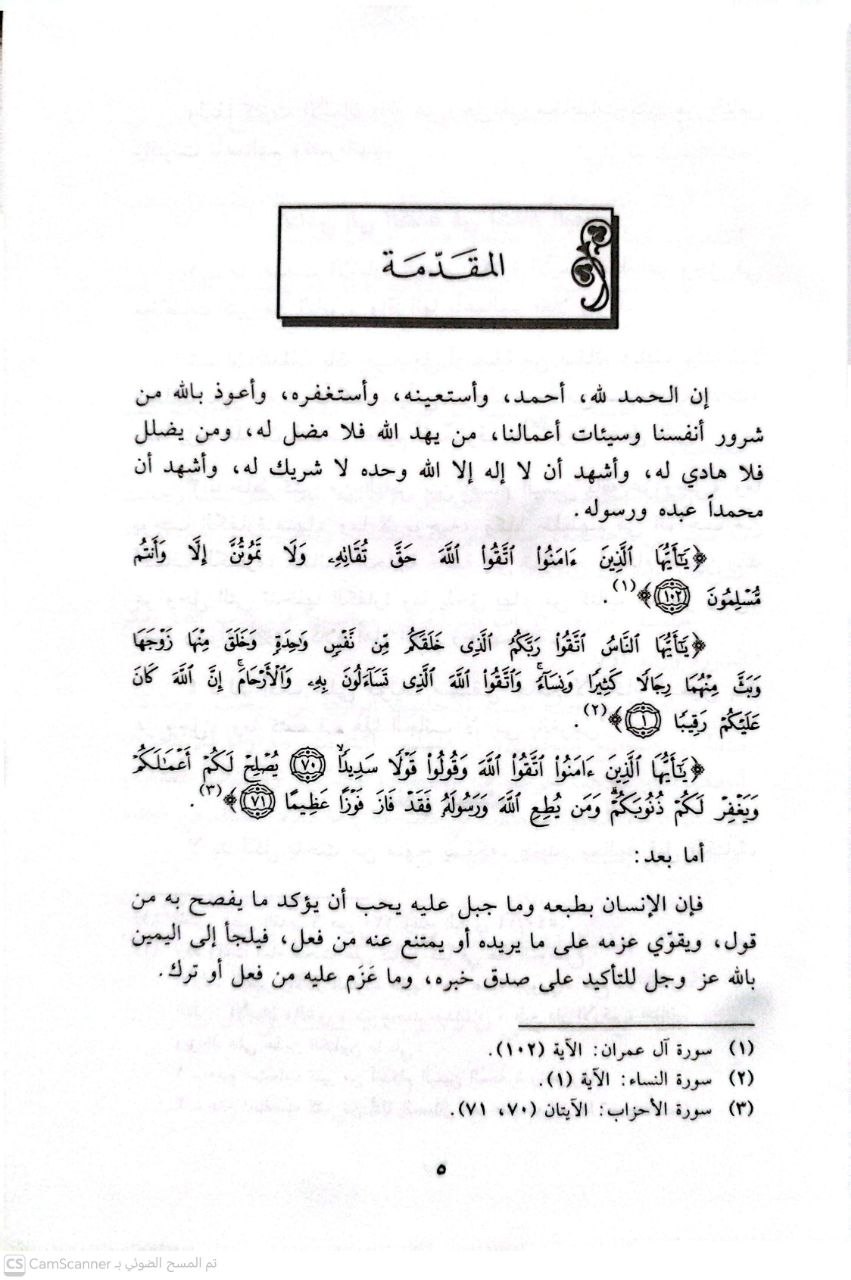 المقَدّمَة
إن الحمد لله، أحمد، وأستعينه، وأستغفره، وأعوذ بالله من
شرور أنفسنا وسيئات أعمالنا، من يهد الله فلا مضل له، ومن يضلل
فلا هادي له، وأشهد أن لا إله إلا الله وحده لا شريك له، وأشهد أن
محمداً عبده ورسوله.
﴿يَٰٓأَيُّهَا ٱلَّذِينَ ءَامَنُوا۟ ٱتَّقُوا۟ ٱللَّهَ حَقَّ تُقَاتِهِۦ وَلَا تَمُوتُنَّ إِلَّا وَأَنتُم
مُّسْلِمُونَ ١٠٢﴾(١).
﴿يَٰٓأَيُّهَا ٱلنَّاسُ ٱتَّقُوا۟ رَبَّكُمُ ٱلَّذِى خَلَقَكُم مِّن نَّفْسٍ وَٰحِدَةٍ وَخَلَقَ مِنْهَا زَوْجَهَا
وَبَثَّ مِنْهُمَا رِجَالًا كَثِيرًا وَنِسَآءً ۚ وَٱتَّقُوا۟ ٱللَّهَ ٱلَّذِى تَسَآءَلُونَ بِهِۦ وَٱلْأَرْحَامَ ۚ إِنَّ ٱللَّهَ كَانَ
عَلَيْكُمْ رَقِيبًا ١﴾(٢).
﴿يَٰٓأَيُّهَا ٱلَّذِينَ ءَامَنُوا۟ ٱتَّقُوا۟ ٱللَّهَ وَقُولُوا۟ قَوْلًا سَدِيدًا ٧٠ يُصْلِحْ لَكُمْ أَعْمَٰلَكُمْ
وَيَغْفِرْ لَكُمْ ذُنُوبَكُمْ ۗ وَمَن يُطِعِ ٱللَّهَ وَرَسُولَهُۥ فَقَدْ فَازَ فَوْزًا عَظِيمًا ٧١﴾(٣).
أما بعد:
فإن الإنسان بطبعه وما جبل عليه يحب أن يؤكد ما يفصح به من
قول، ويقوّي عزمه على ما يريده أو يمتنع عنه من فعل، فيلجأ إلى اليمين
بالله عز وجل للتأكيد على صدق خبره، وما عَزَم عليه من فعل أو ترك.
(١) سورة آل عمران: الآية (١٠٢).
(٢) سورة النساء: الآية (١).
(٣) سورة الأحزاب: الآيتان (٧٠، ٧١).
٥
CS CamScanner تم المسح الضوئي بـ